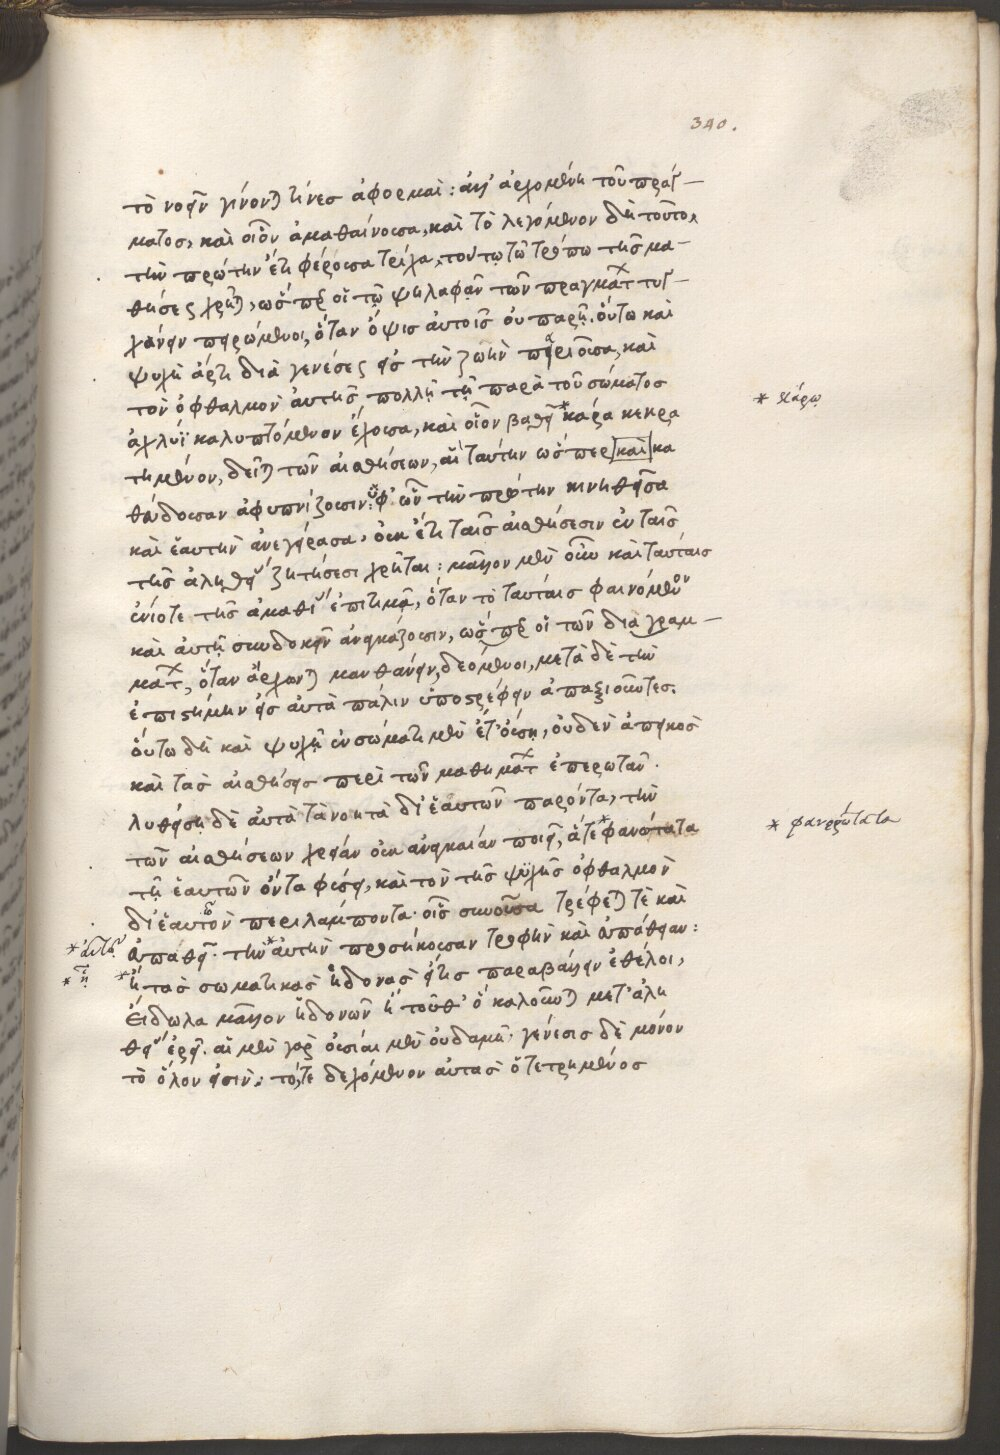 340.
τὸ νοεῖν γίνονται τινὲσ ἀφορμαὶ: ἀλλ' ἀρχομένη τοῦ πράγ-
ματοσ, καὶ οἷον ἀμαθαίνουσα, καὶ τὸ λεγόμενον δὴ τοῦτο,
τὴν πρώτην ἔτι φέρουσα τρίχα, τούτῳ τῷ τρόπω τῆσ μα-
θήσεως χρῆται, ὥσπερ οἱ τῷ ψηλαφᾶν τῶν πραγμάτων τυγ-
χάνειν πηρώμενοι, ὅταν ὄψισ ἀυτοῖσ ὀυ παρῇ. ὅυτω καὶ
ψυχὴ ἄρτι διὰ γενέσεως εἰσ τὴν ζωὴν παριοῦσα, καὶ
τὸν ὀφθαλμὸν ἀυτῆσ πολλῇ τῇ παρὰ τοῦ σώματοσ
ἀχλύϊ καλυπτόμενον ἔχουσα, καὶ οἷον βαθεῖ *κάρα κεκρα
* κάρῳ
τημένον, δεῖται τῶν αἰσθήσεων, αἳ ταύτην ὥσπερ [καὶ] κα
θεύδουσαν ἀφυπνίζουσιν: ὑφ' ὧν τὴν πρώτην κινηθεῖσα
καὶ ἑαυτὴν ἀνεγείρασα, ὀυκ ἔτι ταῖσ αἰσθήσεσιν ἐν ταῖσ
τῆσ ἀληθείας ζητήσεσι χρῆται: μᾶλλον μὲν οὖν καὶ ταύταισ
ἐνίοτε τῆσ ἀμαθίας ἐπιτιμᾷ, ὅταν τὸ ταύταισ φαινόμενον
καὶ ἀυτῇ συνδοκεῖν ἀναγκάζωσιν, ὥσπερ οἱ τῶν διαγραμ-
μάτων, ὅταν ἄρχωνται μανθάνειν, δεόμενοι, μετὰ δὲ τὴν
ἐπιστήμην εἰσ ἀυτὰ πάλιν ὑποστρέφειν ἀπαξιοῦντεσ.
ὅυτω δὴ καὶ ψυχῇ ἐν σώματι μὲν ἔτ' ὀύσῃ, ὀυδὲν ἀπεικὸσ
καὶ τὰσ αἰσθήσεισ περὶ τῶν μαθημάτων ἐπερωτᾶν.
λυθείσῃ δὲ ἀυτὰ τὰ νοητὰ δι' ἑαυτῶν παρόντα, τὴν
τῶν αἰσθήσεων χρείαν ὀυκ ἀναγκαίαν ποιεῖ, ἅτε *φανότατα
* φανερώτατα
τῇ ἑαυτῶν ὄντα φύσει, καὶ τὸν τῆσ ψυχῆσ ὀφθαλμὸν
δι' ἑαυτῶν περιλάμποντα. οἷσ συνοῦσα τρέφεταί τὲ καὶ
* ἀυτῶν
ἐυπαθεῖ. τὴν *ἀυτὴν προσήκουσαν τροφὴν καὶ ἐυπάθειαν:
* ἣν
*ἢ τὰσ σωματικὰσ ἡδονὰσ εἴ τισ παραβάλλειν ἐθέλοι,
ἔιδωλα μᾶλλον ἡδονῶν ἢ τοῦθ' ὃ καλοῦνται μετ' ἀλη
θείας ἐρεῖ. αἳ μὲν γὰρ ὀυσίαι μὲν ὀυδαμῇ. γένεσισ δὲ μόνον
τὸ ὅλον εἰσὶν: τό,τε δεχόμενον ἀυτὰσ ὁ τετρημένοσ